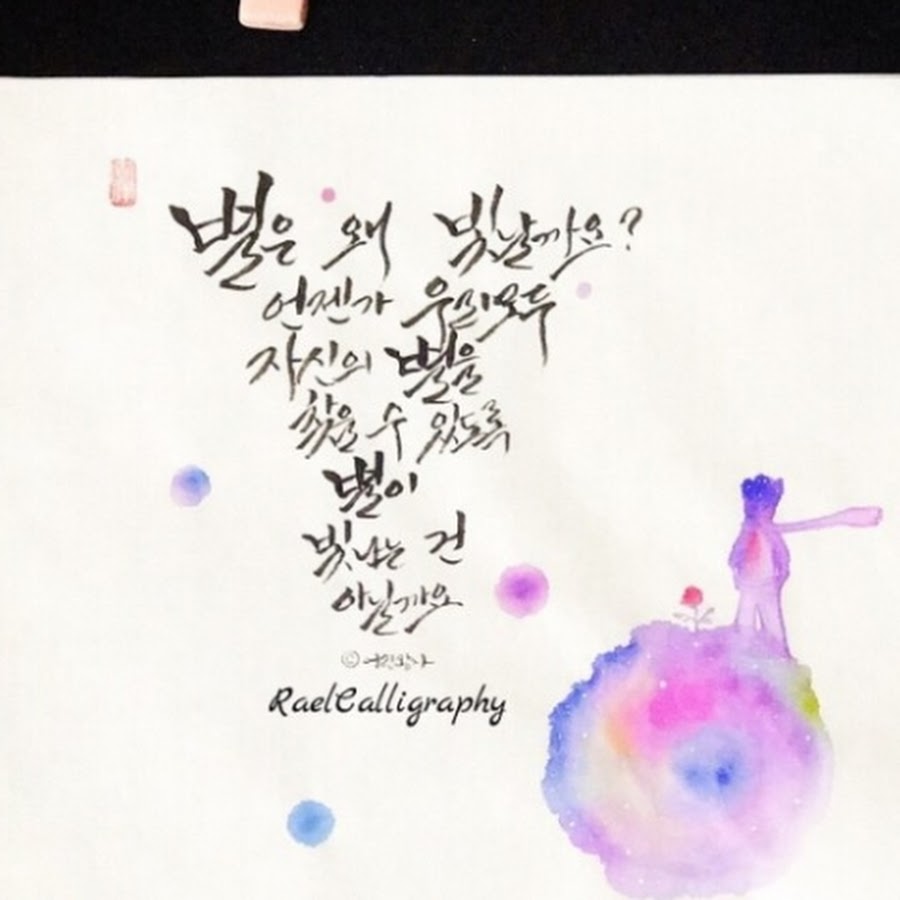 별은 왜 빛날까요?
언젠가 우리모두
자신의 별을
찾을 수 있도록
별이
빛나는 건
아닐까요
© 어린왕자
RaelCalligraphy